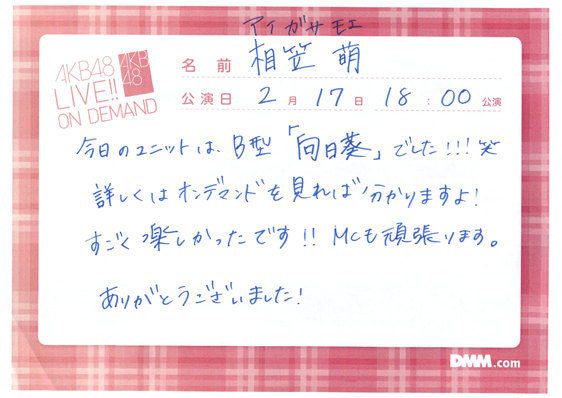 アイガサモエ
AKB48
LIVE!!
ON DEMAND
AKB
48
名前 相笠 萌
公演日 2月17日 18:00公演
今日のユニットは、B型「向日葵」でした!!!笑
詳しくはオンデマンドを見れば分かりますよ!
すごく楽しかったです!! MCも頑張ります。
ありがとうございました!
DMM.com